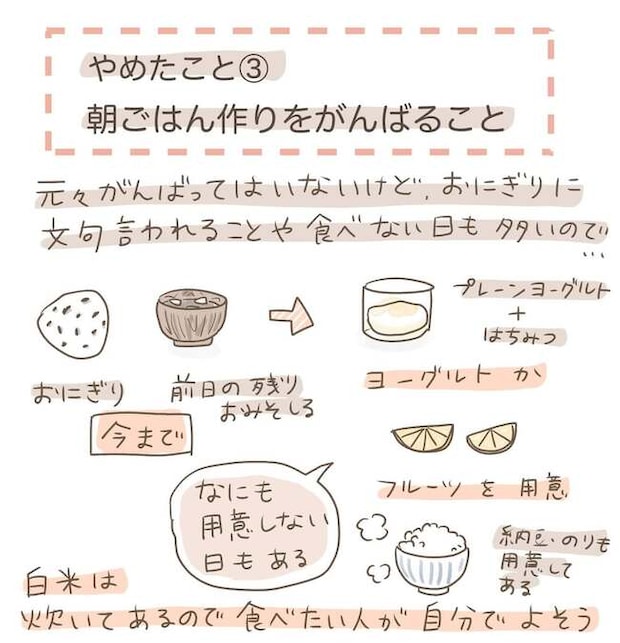 やめたこと③
朝ごはん作りをがんばること
元々がんばってはいないけど、おにぎりに
文句言われることや食べない日も多いので
...
プレーンヨーグルト
+
はちみつ
おにぎり
前日の残り
おみそしる
ヨーグルトか
今まで
フルーツを用意
なにも
用意しない
日もある
納豆・のりも
用意して
ある
白米は
炊いてあるので食べたい人が自分でよそう